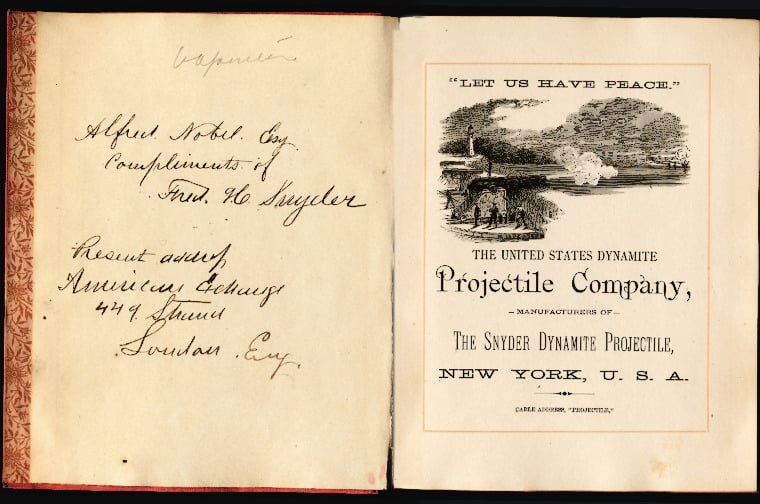 Alfred Nobel Esq
Compliments of
Fred. H Snyder
Present address
American Exchange
449 Strand
London. Eng.
"LET US HAVE PEACE."
THE UNITED STATES DYNAMITE
Projectile Company,
– MANUFACTURERS OF –
THE SNYDER DYNAMITE PROJECTILE,
NEW YORK, U. S. A.
CABLE ADDRESS, "PROJECTILE,"